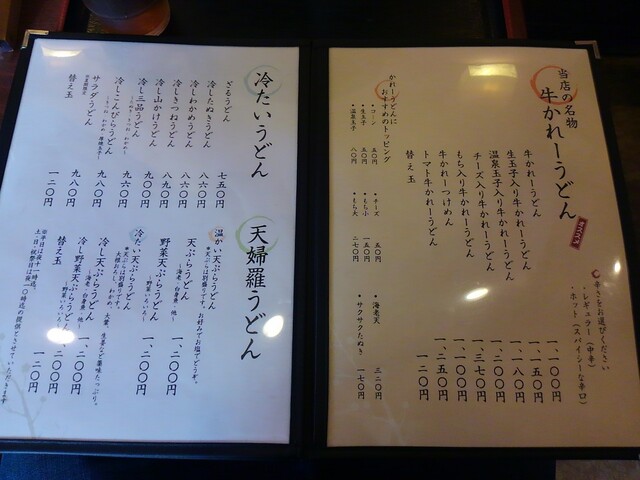 当店の名物
牛かれーうどん
辛さをお選びください
・レギュラー(中辛)
・ホット(スパイシーな辛口)
牛かれーうどん 一、一〇〇円
生玉子入り牛かれーうどん 一、一五〇円
温泉玉子入り牛かれーうどん 一、一八〇円
チーズ入り牛かれーうどん 一、二〇〇円
もち入り牛かれーうどん 一、三七〇円
牛かれーつけめん 一、一〇〇円
トマト牛かれーうどん 一、二五〇円
替え玉 一二〇円
かれーうどんに
おすすめのトッピング
・コーン 五〇円
・生玉子 五〇円
・温泉玉子 八〇円
・チーズ 五〇円
・もち小 一五〇円
・もち大 二七〇円
・海老天 三二〇円
・サクサクたぬき 一七〇円
冷たいうどん
ざるうどん 七五〇円
冷したぬきうどん 八六〇円
冷しわかめうどん 八六〇円
冷しきつねうどん 八九〇円
冷し山かけうどん 九〇〇円
冷し三品うどん 九六〇円
冷しこんぴらうどん 九八〇円
サラダうどん 九八〇円
替え玉 一二〇円
天婦羅うどん
温かい天ぷらうどん
*天ぷらは別盛りです。お好みでお塩でどうぞ。
天ぷらうどん 一、二〇〇円
~海老、白身魚、他~
野菜天ぷらうどん 一、二〇〇円
~野菜いろいろ~
冷たい天ぷらうどん
*天ぷらは別盛りです。
冷し天ぷらうどん 一、二〇〇円
~海老、白身魚、他~
冷し野菜天ぷらうどん 一、二〇〇円
~野菜いろいろ~
替え玉 一二〇円